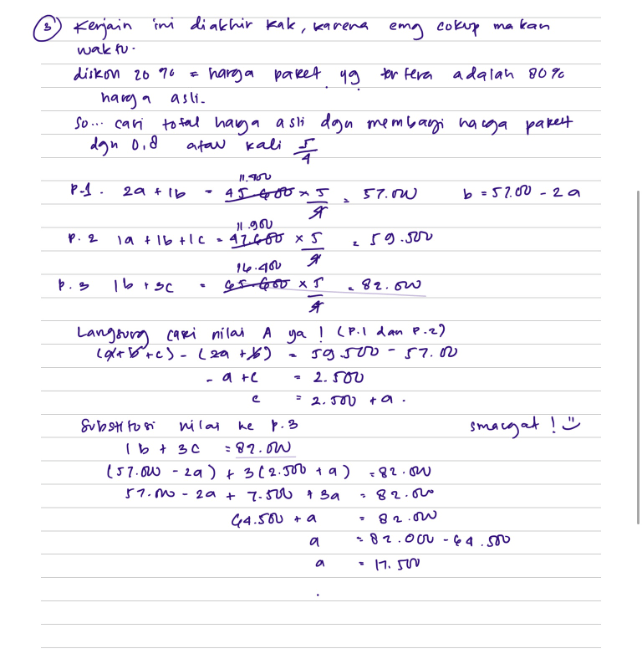 3) Kerjain ini diakhir kak, karena emg cokup makan
waktu.
diskon 20% = harga paket yg tertera adalah 80%
harga asli.
So... cari total harga asli dgn membagi harga paket
dgn 0,8 atau kali 5/4
P.1. 2a + 1b = 45.600 11.400 x 5/4 = 57.000 b = 57.00 - 2a
P.2 1a + 1b + 1c = 47.600 11.900 x 5/4 = 59.500
P.3 1b + 3c = 65.600 16.400 x 5/4 = 82.000
Langsung cari nilai A ya! (P.1 dan P.2)
(a + b + c) - (2a + b) = 59.500 - 57.00
- a + c = 2.500
c = 2.500 + a.
Substitusi nilai ke P.3 smacgat! :)
1b + 3c = 82.000
(57.000 - 2a) + 3(2.500 + a) = 82.000
57.000 - 2a + 7.500 + 3a = 82.000
64.500 + a = 82.000
a = 82.000 - 64.500
a = 17.500